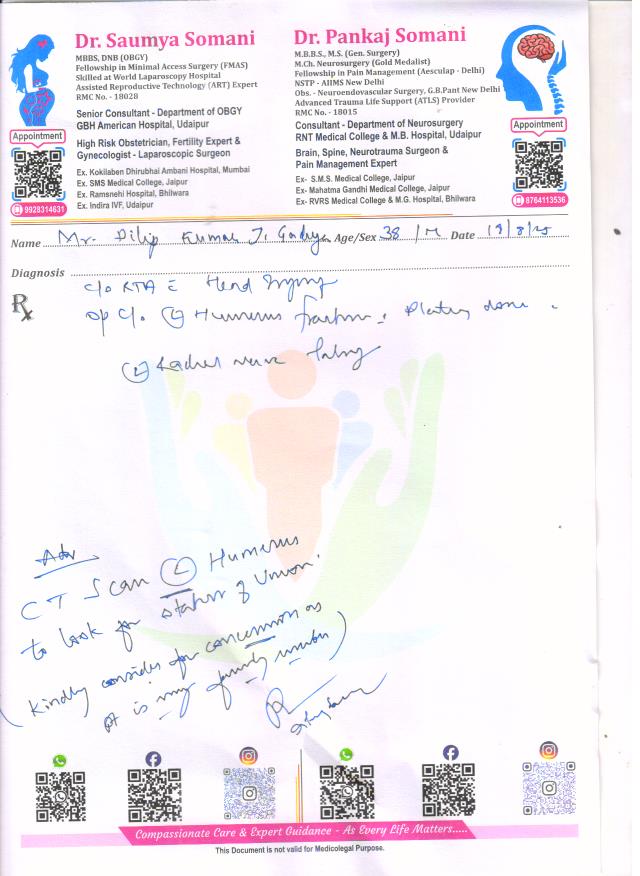 Dr. Saumya Somani
MBBS, DNB (OBGY)
Fellowship in Minimal Access Surgery (FMAS)
Skilled at World Laparoscopy Hospital
Assisted Reproductive Technology (ART) Expert
RMC No. - 18028
Senior Consultant - Department of OBGY
GBH American Hospital, Udaipur
High Risk Obstetrician, Fertility Expert &
Gynecologist - Laparoscopic Surgeon
Ex. Kokilaben Dhirubhai Ambani Hospital, Mumbai
Ex. SMS Medical College, Jaipur
Ex. Ramsnehi Hospital, Bhilwara
Ex. Indira IVF, Udaipur
Appointment
9928314631
Dr. Pankaj Somani
M.B.B.S., M.S. (Gen. Surgery)
M.Ch. Neurosurgery (Gold Medalist)
Fellowship in Pain Management (Aesculap - Delhi)
NSTP - AIIMS New Delhi
Obs. - Neuroendovascular Surgery, G.B.Pant New Delhi
Advanced Trauma Life Support (ATLS) Provider
RMC No. - 18015
Consultant - Department of Neurosurgery
RNT Medical College & M.B. Hospital, Udaipur
Brain, Spine, Neurotrauma Surgeon &
Pain Management Expert
Ex- S.M.S. Medical College, Jaipur
Ex- Mahatma Gandhi Medical College, Jaipur
Ex- RVRS Medical College & M.G. Hospital, Bhilwara
Appointment
8764113536
Name Mr. Dilip Kumar J. Age/Sex 38 / M Date
Diagnosis
c/o RTA c Head Injury
Rx
op c/o (L) Humerus fracture c Plating done.
(L) Radial nerve
Adv
CT Scan (L) Humerus
to look for status of Union.
(Kindly consider for concession as
pt is my family member)
Compassionate Care & Expert Guidance - As Every Life Matters.....
This Document is not valid for Medicolegal Purpose.